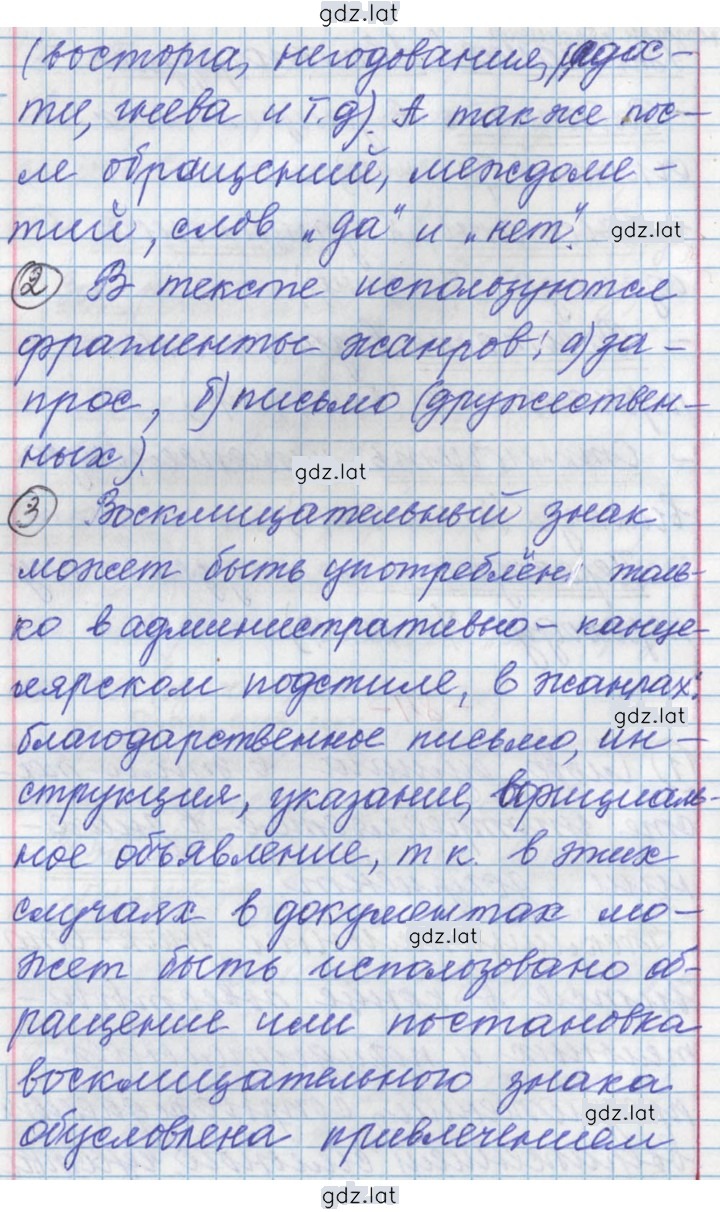 gdz.lat
(восторга, негодования, радос-
ти, гнева и т.д). А также пос-
ле обращений, междоме-
тий, слов „да" и „нет".
gdz.lat
② В тексте используются
фрагменты жанров: а) за-
прос, б) письмо (дружествен-
ных).
gdz.lat
③ Восклицательный знак
может быть употреблён толь-
ко в административно-канце-
лярском подстиле, в жанрах:
gdz.lat
благодарственное письмо, ин-
струкция, указание, официаль-
ное объявление, т к. в этих
случаях в документах мо-
gdz.lat
жет быть использовано об-
ращение или постановка
восклицательного знака
gdz.lat
обусловлена привлечением
gdz.lat